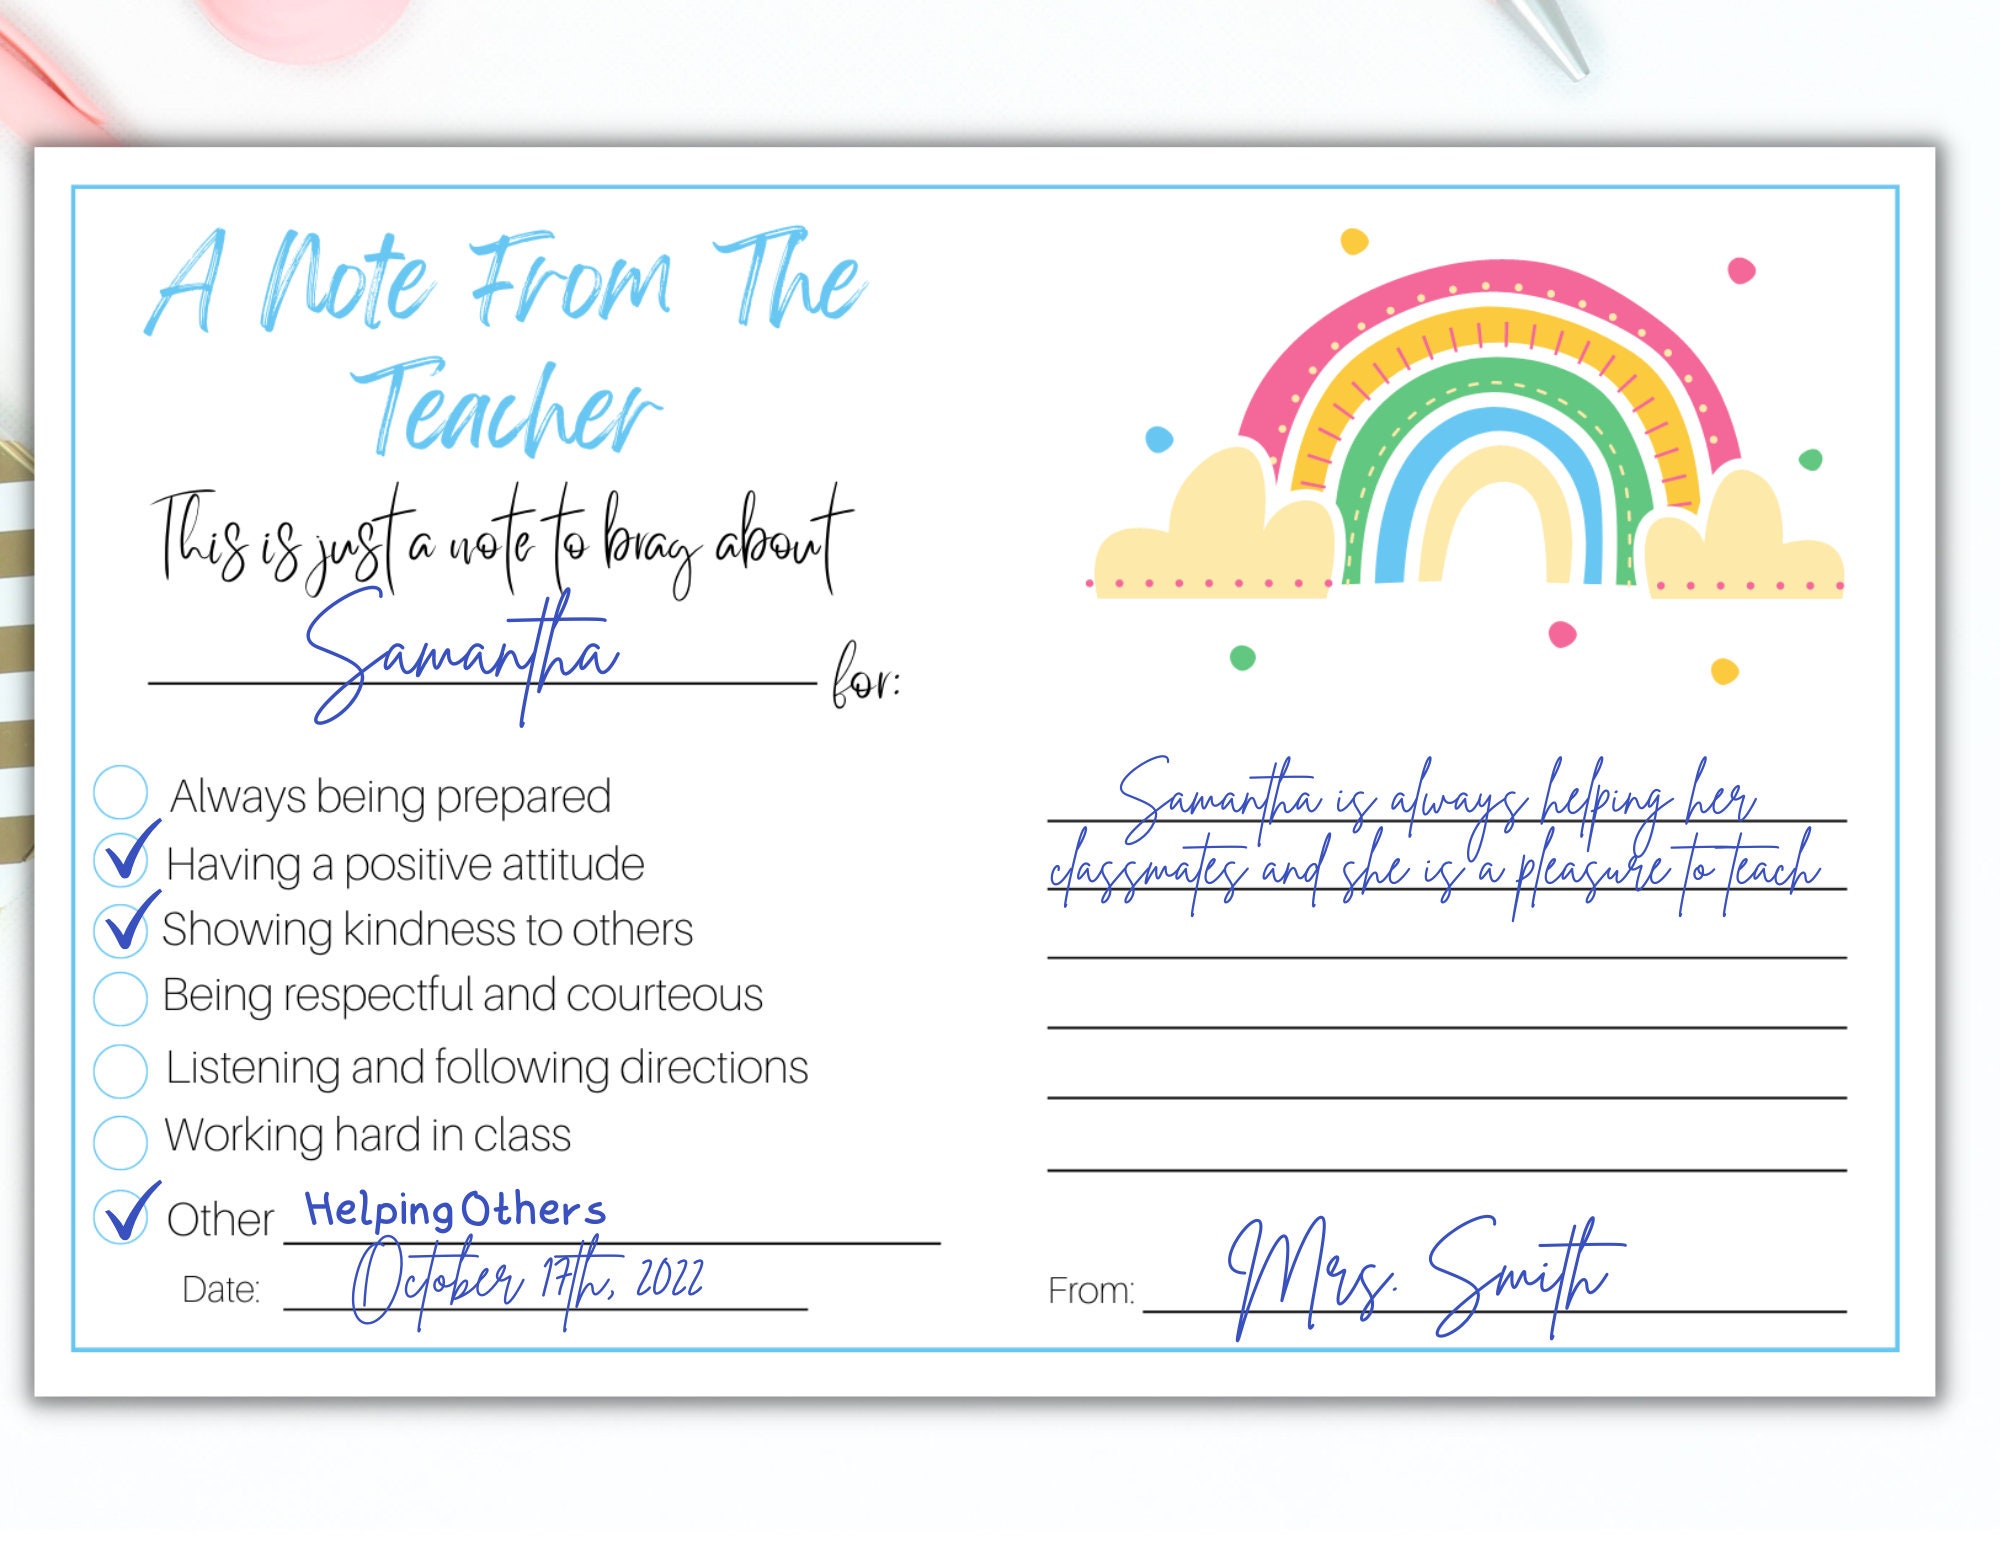 A Note From The
Teacher
This is just a note to brag about
Samantha for:
Always being prepared
Having a positive attitude
Showing kindness to others
Being respectful and courteous
Listening and following directions
Working hard in class
Other Helping Others
Date: October 17th, 2022
Samantha is always helping her
classmates and she is a pleasure to teach
From: Mrs. Smith